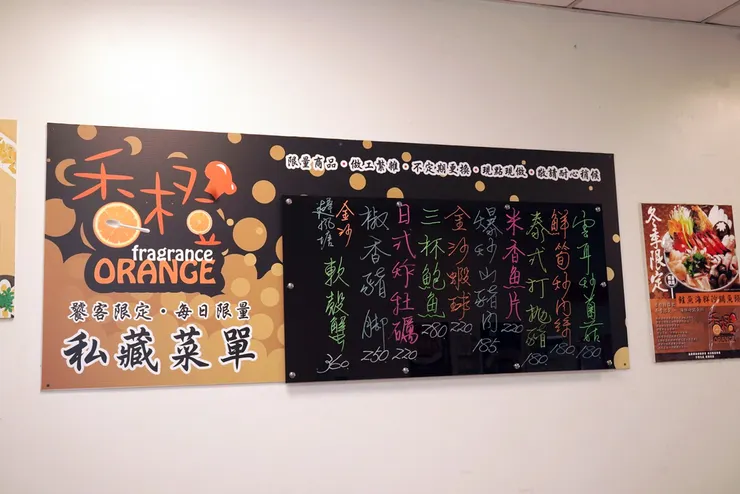 香橙
fragrance
ORANGE
饕客限定・每日限量
私藏菜單
限量商品・做工繁雜・不定期更換・現點現做・敬請耐心稍候
雲耳炒菌菇 180
鮮筍炒肉絲 180
泰式打拋豬 180
米香魚片 220
爆炒山豬肉 185
金沙蝦球 220
三杯鮑魚 280
日式炸牡礪 220
椒香豬腳 250
金沙
避風塘 軟殼蟹 360
冬季限定
鮭魚海鮮沙鍋魚頭